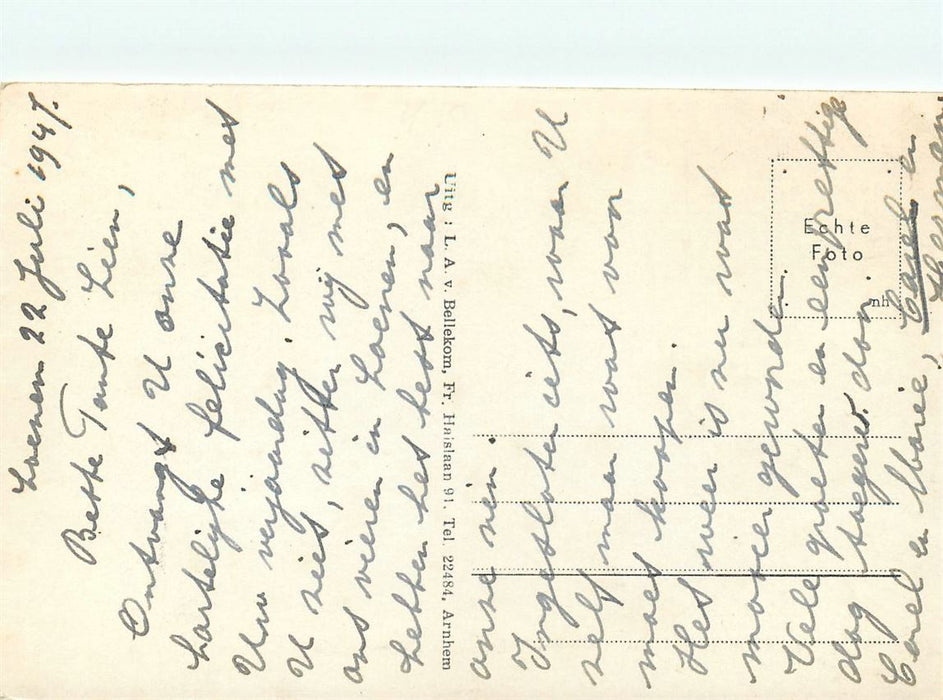 Loenen 22 Juli 1947.
Beste Tante Lien,
Ontvangt U onze
hartelijke felicitatie met
Uw verjaardag. Zooals
U ziet, zitten wij met
ons vieren in Loenen, en
hebben het best naar
onze zin
Ingesloten iets, waar U
zelf maar wat voor
moet koopen.
Het weer is nu wat
mooier geworden.
Vele groeten en een prettige
dag toegew. door
Carel en
Uitg : L. A. v. Bellekom, Fr. Halslaan 91. Tel. 22484, Arnhem
Echte
Foto
nh